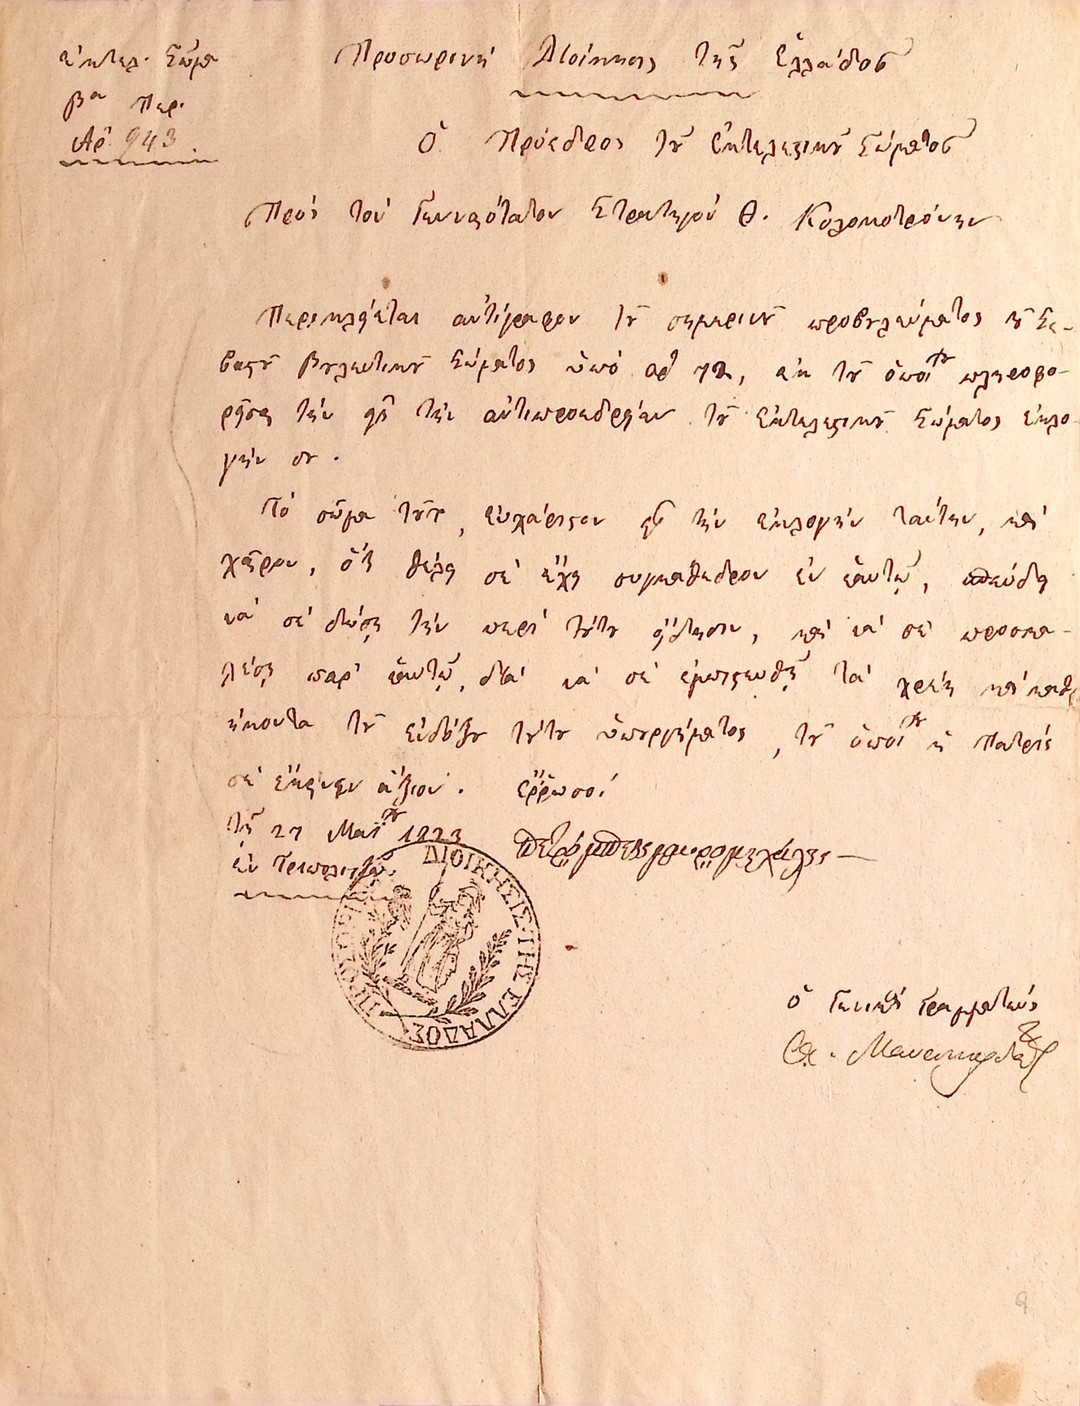 ἐκτελ. Σῶμα
βα Περ.
Ἀρ. 943.
Προσωρινή Διοίκησις τῆς Ἑλλάδος
Ὁ Πρόεδρος τοῦ Ἐκτελεστικοῦ Σώματος
Πρός τόν Γενναιότατον Στρατηγόν Θ. Κολοκοτρώνην
Περικλείεται ἀντίγραφον τοῦ σημερινοῦ προβουλεύματος τοῦ Σε-
βαστοῦ Βουλευτικοῦ Σώματος ὑπό ἀρ. 72, ἐκ τοῦ ὁποίου πληροφο-
ρεῖσαι τήν εἰς τήν ἀντιπροεδρείαν τοῦ Ἐκτελεστικοῦ Σώματος ἐκλο-
γήν σου.
Τό σῶμα τοῦτο, εὐχάριστον εἰς τήν ἐκλογήν ταύτην, καί
χαῖρον, ὅτι θέλει σέ ἔχει συγκάθεδρον ἐν ἑαυτῷ, σπεύδει
νά σέ δώσῃ τήν περί τούτου εἴδησιν, καί νά σέ προσκα-
λέσῃ παρ' ἑαυτῷ, διά νά σέ ἐμπιστευθῇ τά χρέη καί καθ
ήκοντα τοῦ ἐνδόξου τούτου ὑπουργήματος, τοῦ ὁποίου ἡ Πατρίς
σέ ἔκρινεν ἄξιον. ἔρρωσο!
τῇ 27 Μαΐου 1823
ἐν Τριπολιτζᾷ.
πετρόμπεης μαυρομιχάλης
ΠΡΟΣΩΡΙΝΗ ΔΙΟΙΚΗΣΙΣ ΤΗΣ ΕΛΛΑΔΟΣ
ὁ Γενικός Γραμματεύς